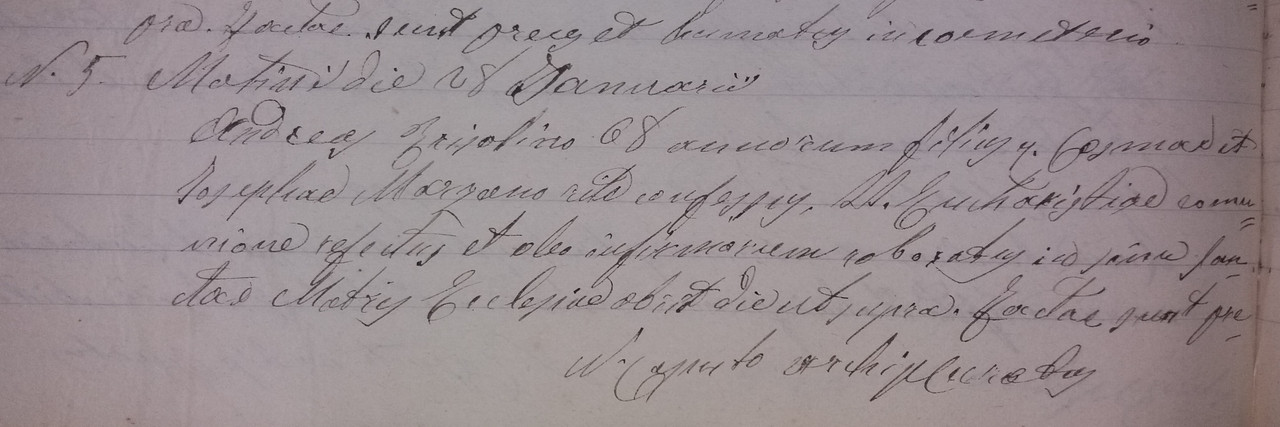 pra. Factae sunt preces et humatus in coemeterio
N. 5. Matini die 28 Januarii
Andreas Frisolino 68 annorum filius q. Cosmae et
Josephae Marzano rite confessus, SS. Eucharistiae comu=
nione refectus et oleo infirmorum roboratus in sinu San=
ctae Matris Ecclesiae obiit die ut supra. Factae sunt pre=
N. Caputo Archip. Curatus